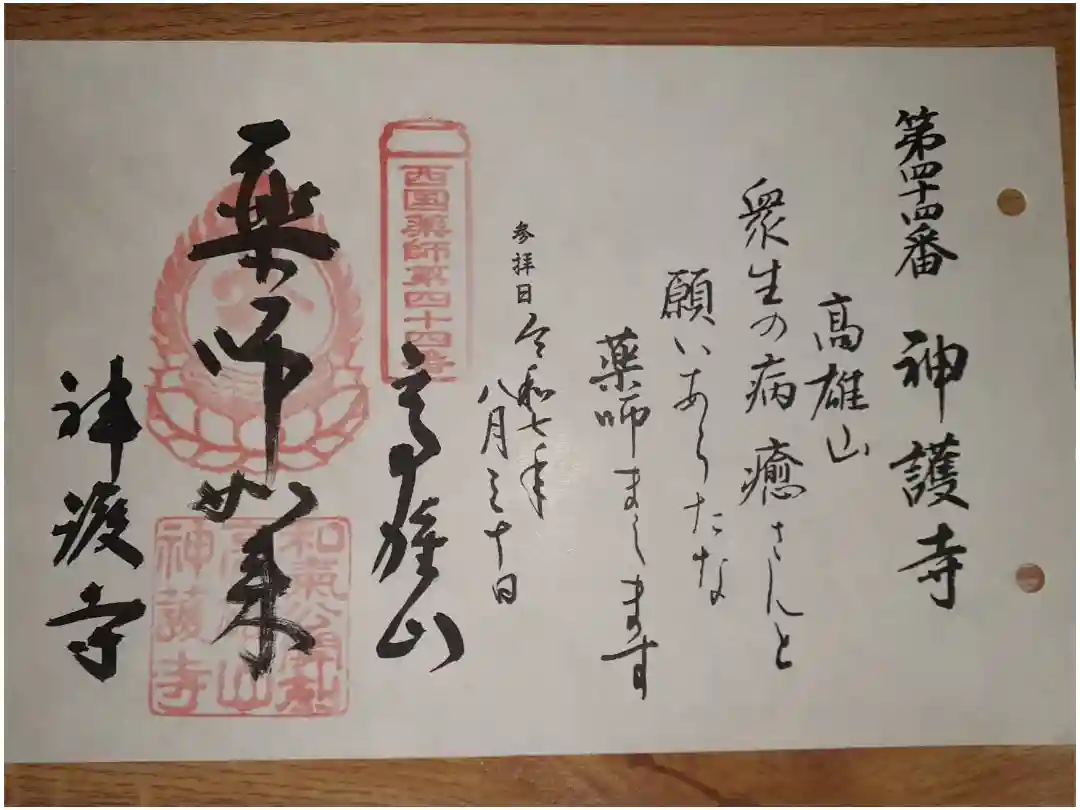 第四十四番 神護寺
高雄山
衆生の病 癒さんと
願いあらたな
薬師まします
参拝日 令和七年
八月三十日
西国薬師第四十四番
高雄山
薬師如来
神護寺
和氣公開創
高雄山
神護寺